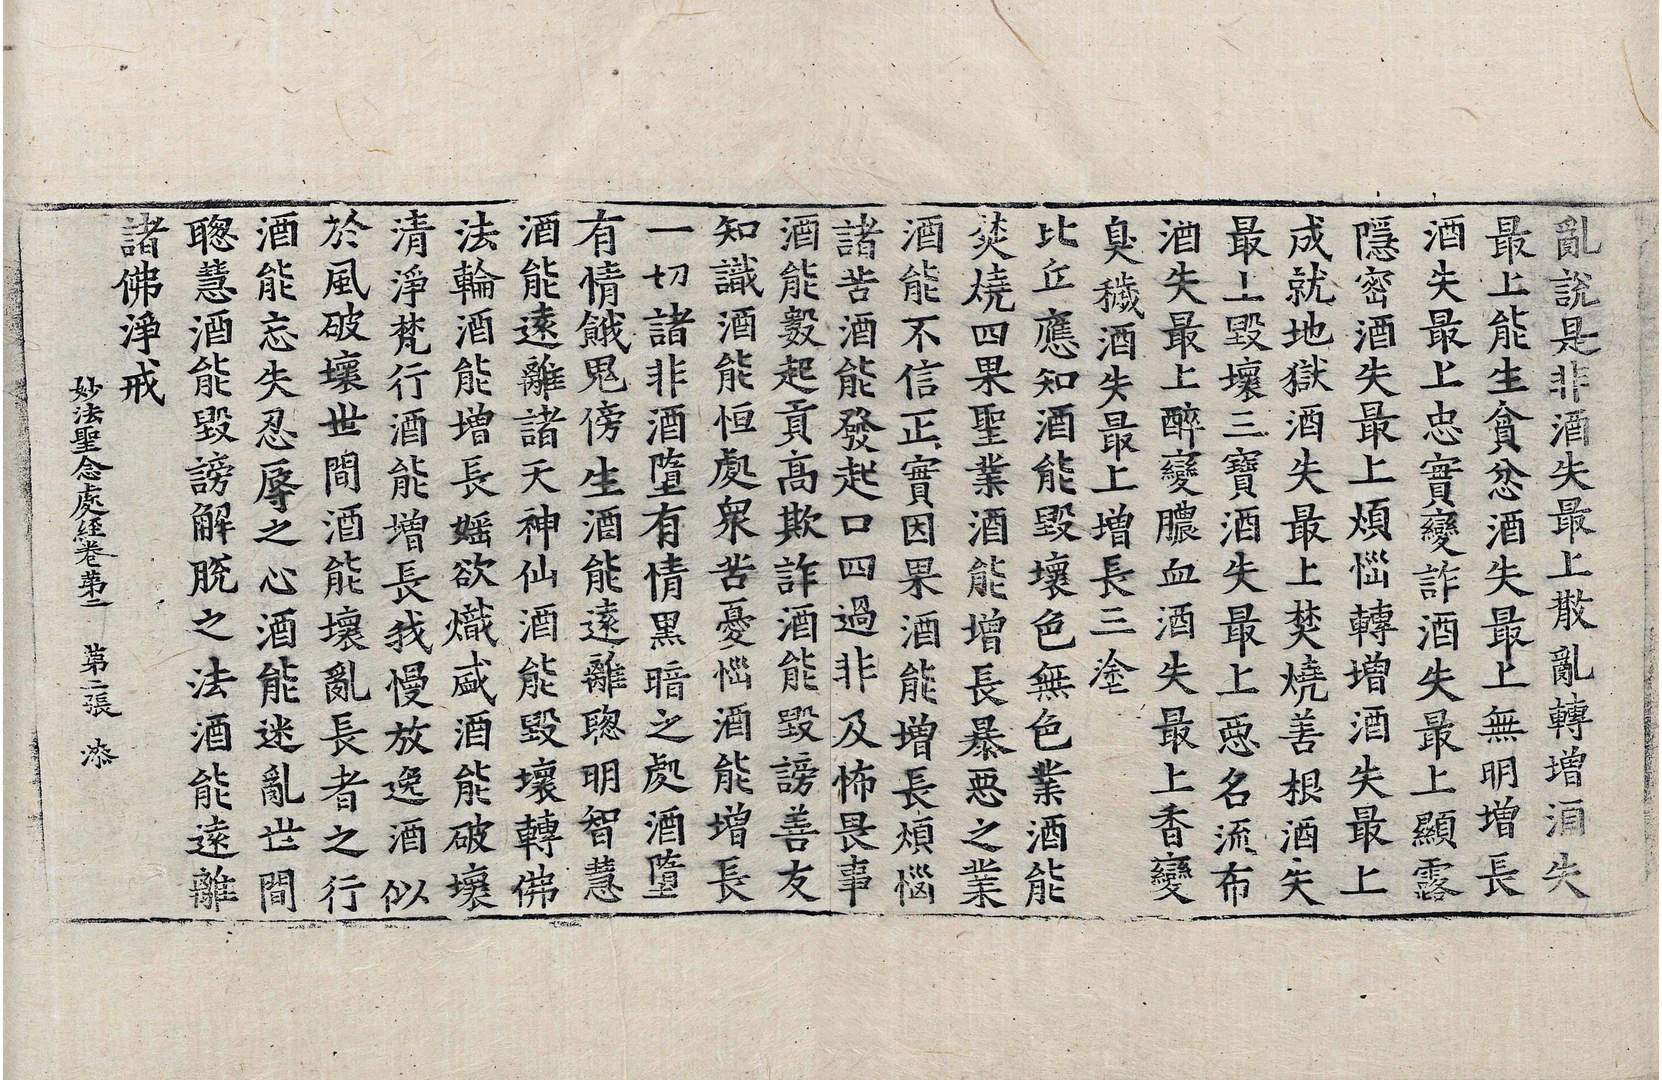 亂說是非酒失最上散亂轉增酒失
最上能生貪忿酒失最上無明增長
酒失最上忠實變詐酒失最上顯露
隱密酒失最上煩惱轉增酒失最上
成就地獄酒失最上焚燒善根酒失
最上毀壞三寶酒失最上惡名流布
酒失最上醉變膿血酒失最上香變
臭穢酒失最上增長三塗
比丘應知酒能毀壞色無色業酒能
焚燒四果聖業酒能增長暴惡之業
酒能不信正實因果酒能增長煩惱
諸苦酒能發起口四過非及怖畏事
酒能㪍起貢高欺詐酒能毀謗善友
知識酒能恒處衆苦憂惱酒能增長
一切諸非酒墮有情黑暗之處酒墮
有情餓鬼傍生酒能遠離聦明智慧
酒能遠離諸天神仙酒能毀壞轉佛
法輪酒能增長婬欲熾盛酒能破壞
清淨梵行酒能增長我慢放逸酒似
於風破壞世間酒能壞亂長者之行
酒能忘失忍辱之心酒能迷亂世間
聦慧酒能毀謗解脫之法酒能遠離
諸佛淨戒
妙法聖念處經卷第二 第二張 漆